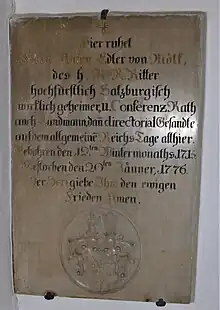 Hier ruhet
Edler von
des H. R. R. Ritter
hochfürstlich Salzburgisch
wirklich geheimer, u. Conferenz Rath
auch Landmann, dan directorial Gesandte
auf dem allgemeinē Reichs Tage allhier.
Gebohren den Wintermonaths
Gestorben den 20ten Jänner, 1776.
Der Herr gebe Ihm den ewigen
Frieden Amen.